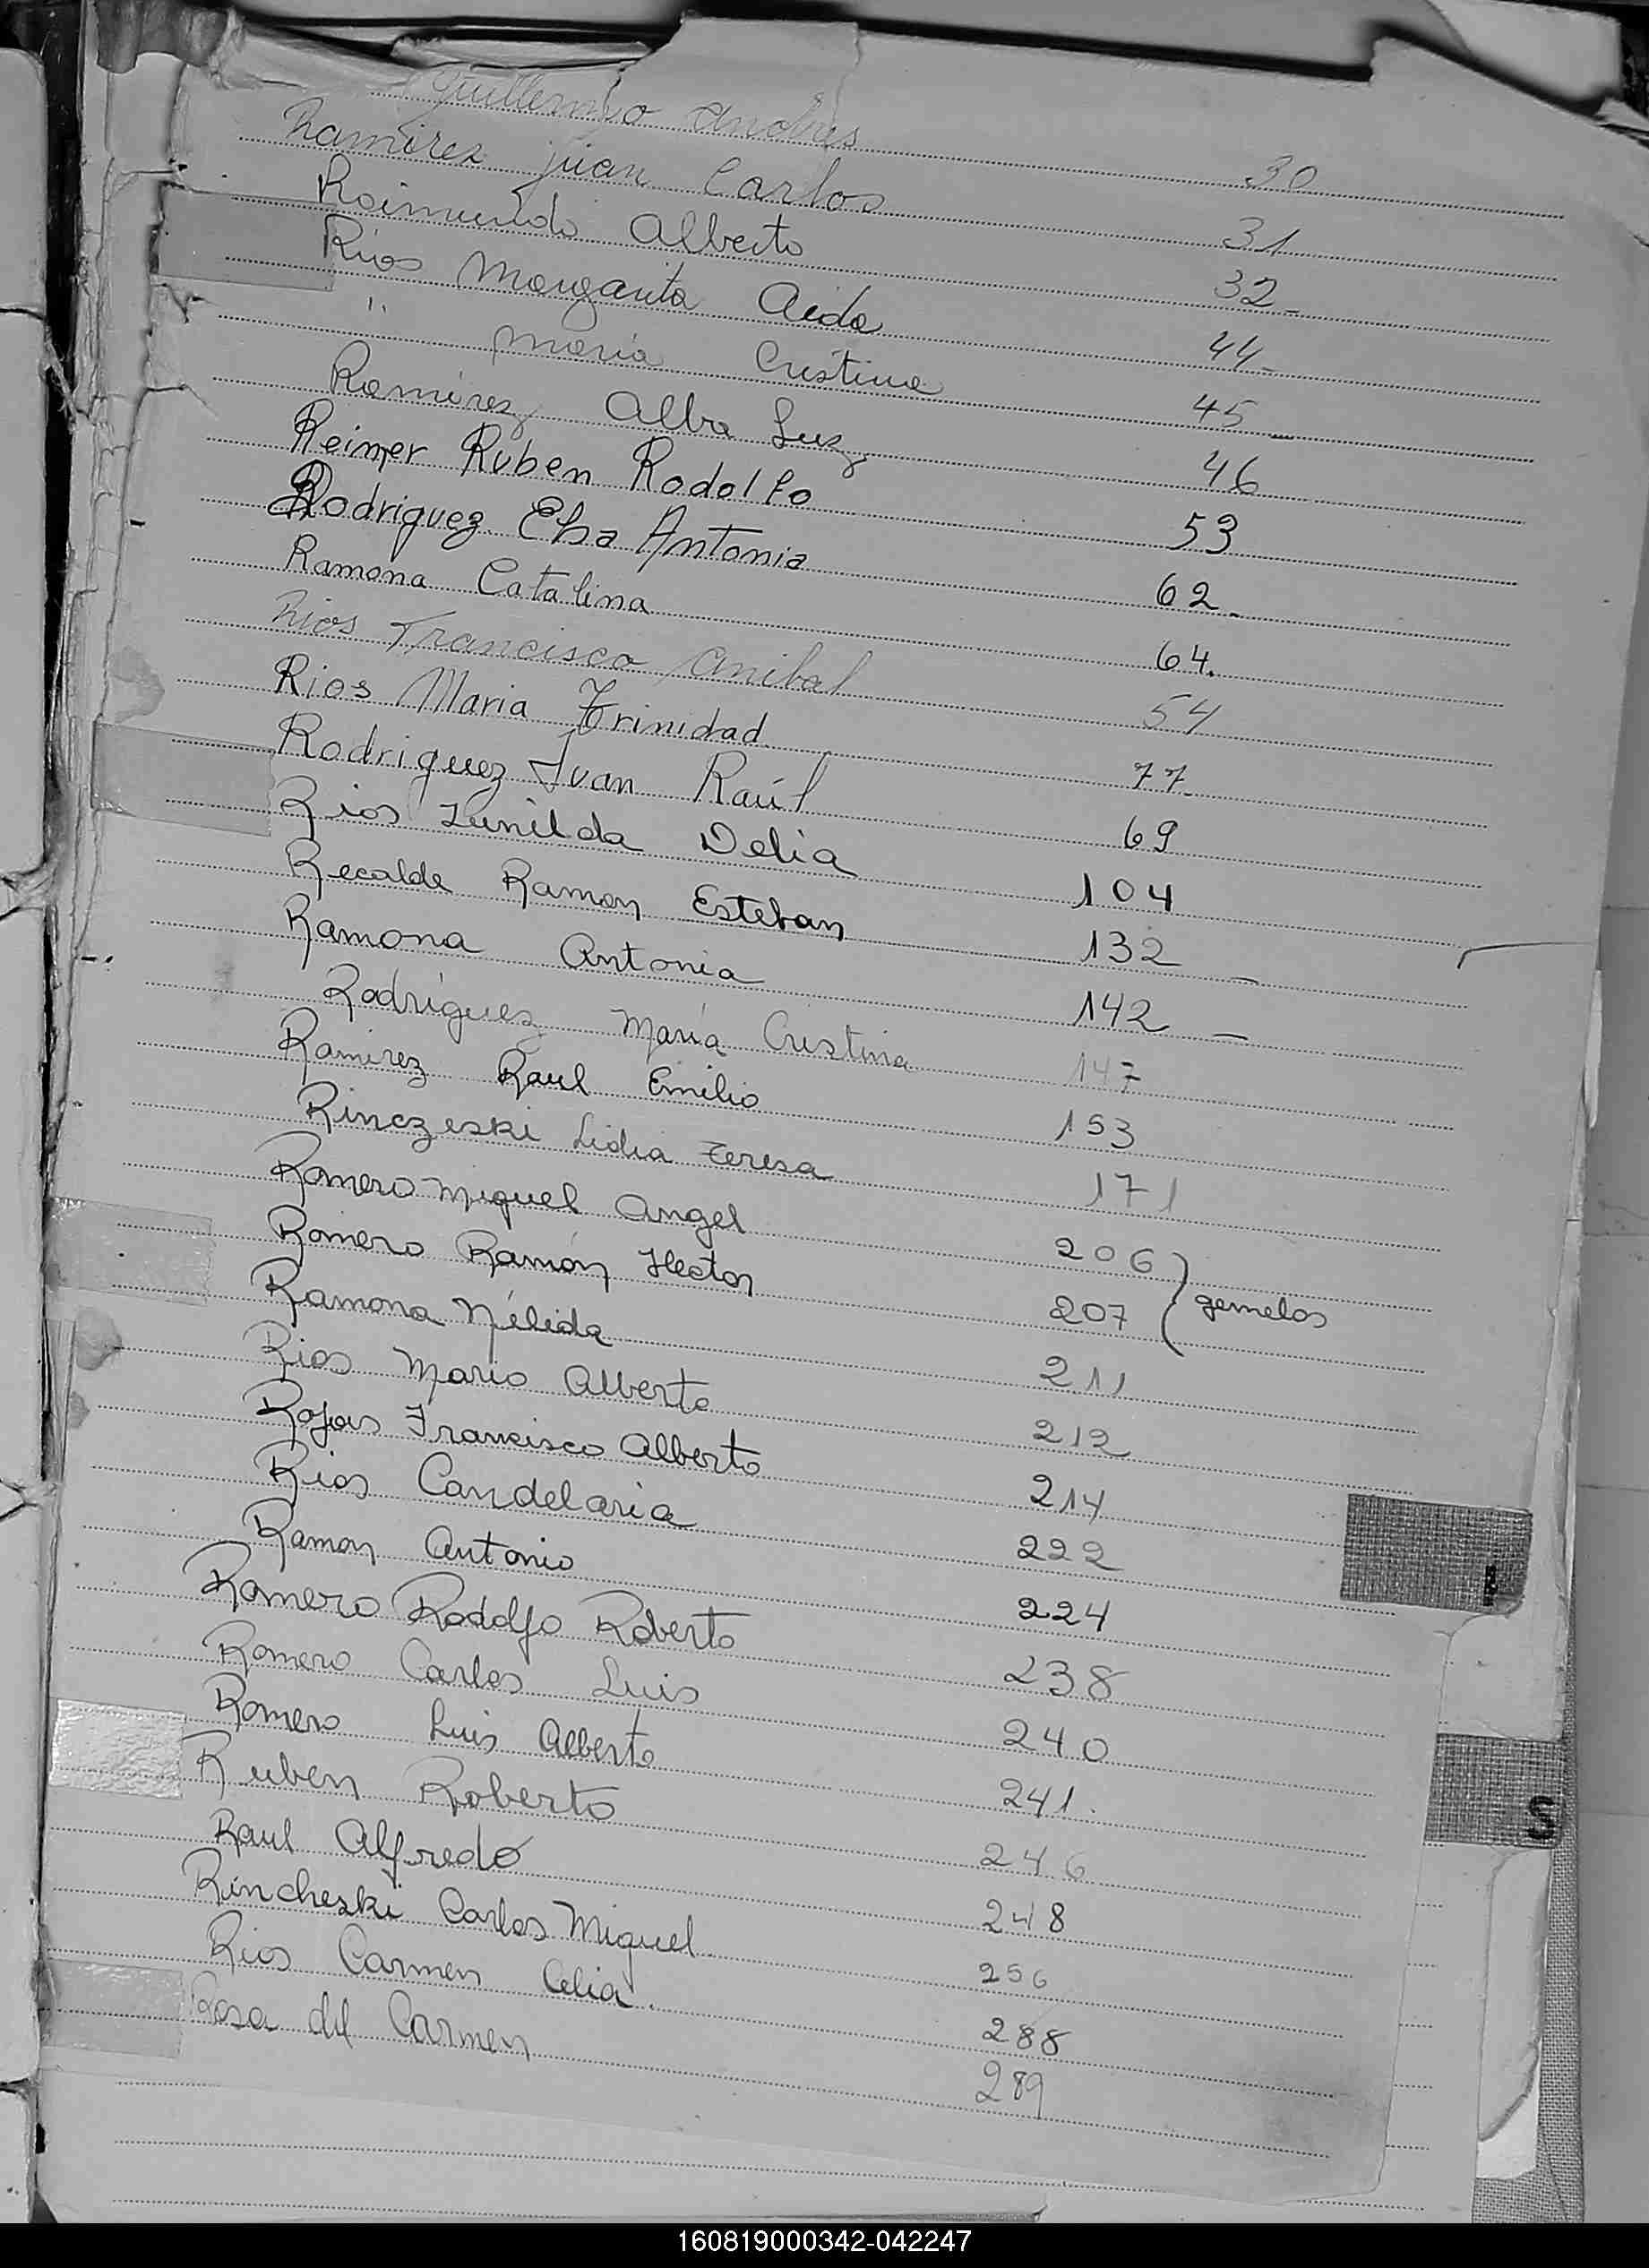 Guillermo Andres 30
Ramirez Juan Carlos 31
Raimundo Alberto 32-
Rios Margarita Aida 44-
" Maria Cristina 45-
Ramirez Alba Luz 46
Reimer Ruben Rodolfo 53
Rodriguez Elsa Antonia 62-
Ramona Catalina 64.
Rios Francisco Anibal 54
Rios Maria Trinidad 77-
Rodriguez Juan Raúl 69
Rios Zunilda Delia 104
Recalde Ramon Esteban 132 -
Ramona Antonia 142 -
Rodríguez María Cristina 147
Ramirez Raul Emilio 153
Rinczeski Lidia Teresa 171
Romero Miguel Angel 206
Romero Ramón Hector 207 gemelos
Ramona Nélida 211
Rios Mario Alberto 212
Rojas Francisco Alberto 214
Rios Candelaria 222
Ramon Antonio 224
Romero Rodolfo Roberto 238
Romero Carlos Luis 240
Romero Luis Alberto 241.
Ruben Roberto 246
Raul Alfredo 248
Rincheski Carlos Miguel 256
Rios Carmen Celia. 288
Rosa del Carmen 289
S
160819000342-042247